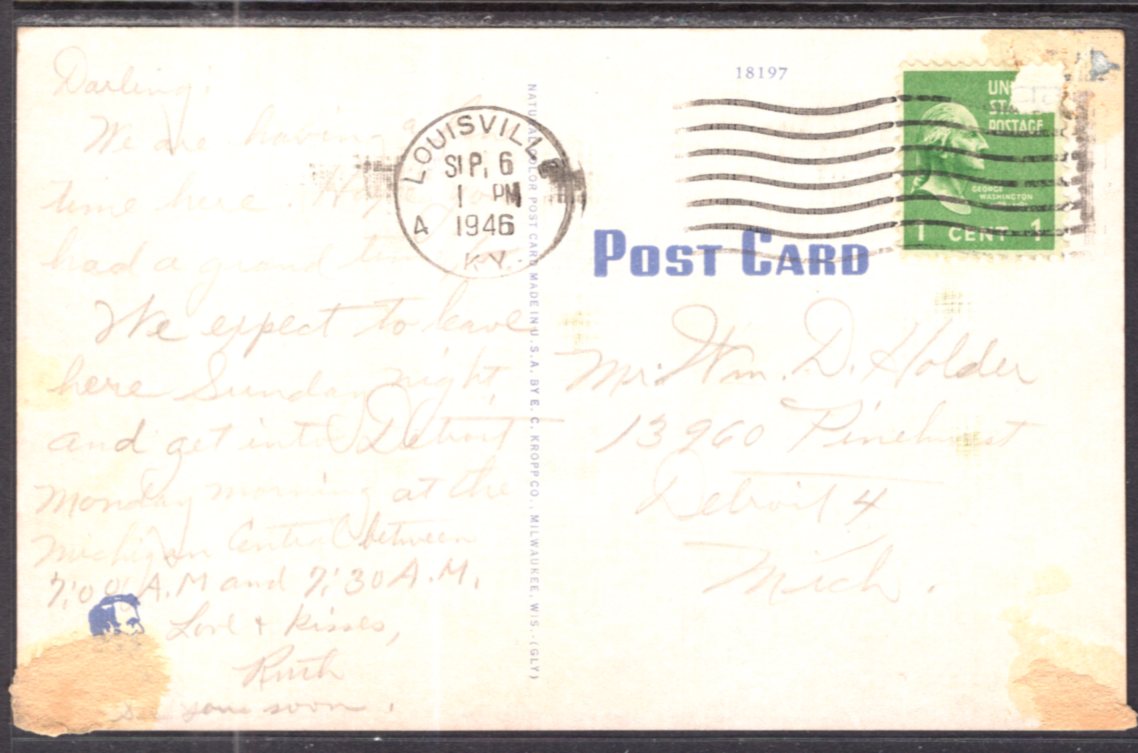 Darling:
We are having a
time here. Hope you
had a grand time
We expect to leave
here Sunday night
and get into Detroit
Monday morning at the
Michigan Central between
7:00 A.M and 7:30 A.M.
Love & Kisses,
Ruth
see you soon.
NATURAL COLOR POST CARD MADE IN U.S.A. BY E. C. KROPP CO., MILWAUKEE, WIS.-(GLY)
LOUISVILLE
SEP. 6
1 PM
4 1946
KY.
18197
UN
STA
POSTAGE
GEORGE
WASHINGTON
1 CENT 1
POST CARD
Mr. Wm. D. Holder
13960 Pinehurst
Detroit 4
Mich.